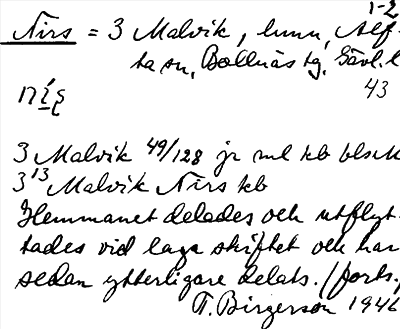 1-2
Nirs = 3 Malvik, hmn, Alf-
ta sn, Bollnäs tg, Gävl. l
níș 43
3 Malvik 49/128 jr ml kb blsM
3¹³ Malvik Nirs kb
Hemmanet delades och utflyt-
tades vid laga skiftet och har
sedan ytterligare delats. /forts./
T. Birgerson 1946